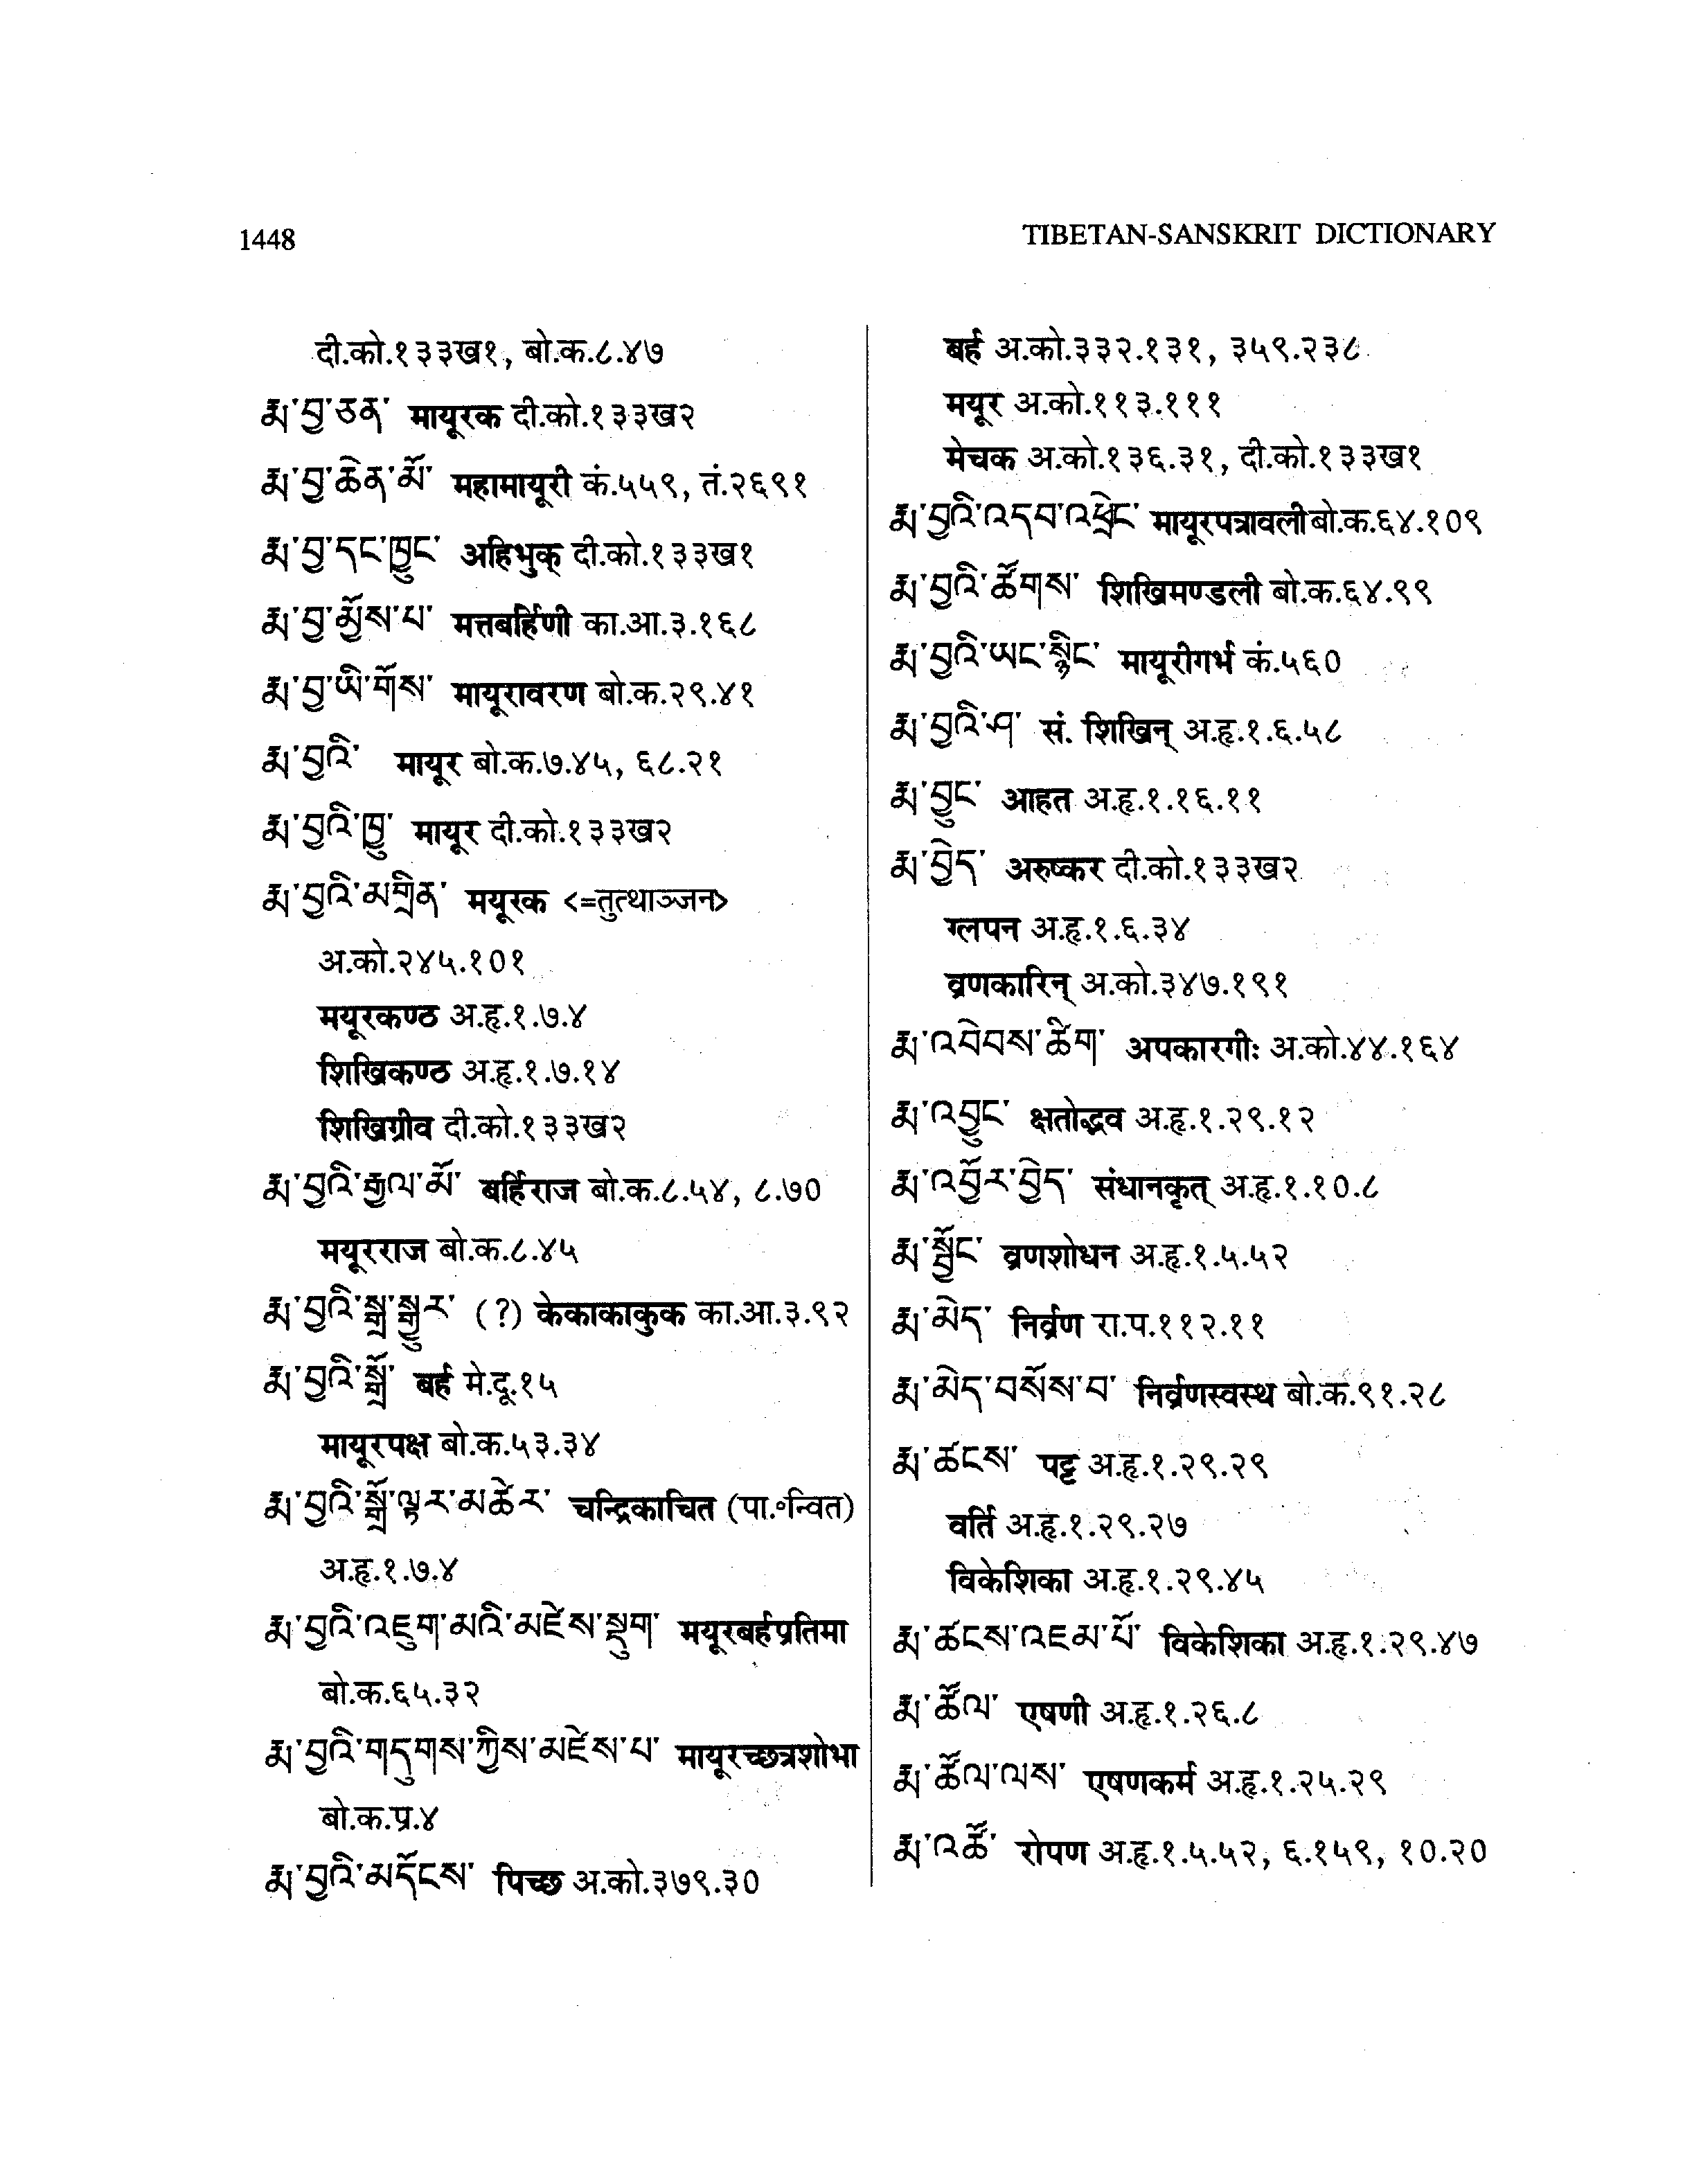 1448
TIBETAN-SANSKRIT DICTIONARY
दी.को.१३३ख१, बो.क.८.४७
རྨ་བྱ་ཅན་ मायूरक दी.को.१३३ख२
རྨ་བྱ་ཆེན་མོ་ महामायूरी कं.५५९, तं.२६९१
རྨ་བྱ་དང་ཁྱུང་ अहिभुक् दी.को.१३३ख१
རྨ་བྱ་མྱོས་པ་ मत्तबर्हिणी का.आ.३.१६८
རྨ་བྱ་ཡི་གོས་ मायूरावरण बो.क.२९.४१
རྨ་བྱའི་ मायूर बो.क.७.४५, ६८.२१
རྨ་བྱའི་ཁྱུ་ मायूर दी.को.१३३ख२
རྨ་བྱའི་མགྲིན་ मयूरक <=तुत्थाञ्जन>
अ.को.२४५.१०१
मयूरकण्ठ अ.हृ.१.७.४
शिखिकण्ठ अ.हृ.१.७.१४
शिखिग्रीव दी.को.१३३ख२
རྨ་བྱའི་རྒྱལ་མོ་ बर्हिराज बो.क.८.५४, ८.७०
मयूरराज बो.क.८.४५
རྨ་བྱའི་སྒྲ་སྒྱུར་ (?) केकाकाकुक का.आ.३.९२
རྨ་བྱའི་སྒྲོ་ बर्ह मे.दू.१५
मायूरपक्ष बो.क.५३.३४
རྨ་བྱའི་སྒྲོ་ལྟར་མཚེར་ चन्द्रिकाचित (पा.॰न्वित)
अ.हृ.१.७.४
རྨ་བྱའི་འཇུག་མའི་མཛེས་སྡུག་ मयूरबर्हप्रतिमा
बो.क.६५.३२
རྨ་བྱའི་གདུགས་ཀྱིས་མཛེས་པ་ मायूरच्छत्रशोभा
बो.क.प्र.४
རྨ་བྱའི་མདོངས་ पिच्छ अ.को.३७९.३०
बर्ह अ.को.३३२.१३१, ३५९.२३८
मयूर अ.को.११३.१११
मेचक अ.को.१३६.३१, दी.को.१३३ख१
རྨ་བྱའི་འདབ་འཕྲེང་ मायूरपत्रावली बो.क.६४.१०९
རྨ་བྱའི་ཚོགས་ शिखिमण्डली बो.क.६४.९९
རྨ་བྱའི་ཡང་སྙིང་ मायूरीगर्भ कं.५६०
རྨ་བྱའི་ཤ་ सं. शिखिन् अ.हृ.१.६.५८
རྨ་བྱུང་ आहत अ.हृ.१.१६.११
རྨ་བྱེད་ अरुष्कर दी.को.१३३ख२
ग्लपन अ.हृ.१.६.३४
व्रणकारिन् अ.को.३४७.१९१
རྨ་འབེབས་ཚིག་ अपकारगीः अ.को.४४.१६४
རྨ་འབྱུང་ क्षतोद्भव अ.हृ.१.२९.१२
རྨ་འབྱོར་བྱེད་ संधानकृत् अ.हृ.१.१०.८
རྨ་སྦྱོང་ व्रणशोधन अ.हृ.१.५.५२
རྨ་མེད་ निर्व्रण रा.प.११२.११
རྨ་མེད་བསོས་བ་ निर्व्रणस्वस्थ बो.क.९१.२८
རྨ་ཚངས་ पट्ट अ.हृ.१.२९.२९
वर्ति अ.हृ.१.२९.२७
विकेशिका अ.हृ.१.२९.४५
རྨ་ཚངས་འཇམ་པོ་ विकेशिका अ.हृ.१.२९.४७
རྨ་ཚོལ་ एषणी अ.हृ.१.२६.८
རྨ་ཚོལ་ལས་ एषणकर्म अ.हृ.१.२५.२९
རྨ་འཚོ་ रोपण अ.हृ.१.५.५२, ६.१५९, १०.२०